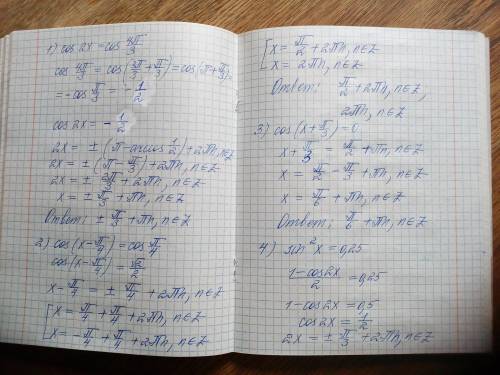 1) cos 2x = cos 4π/3
cos 4π/3 = cos(3π/3 + π/3) = cos(π + π/3) =
= -cos π/3 = -1/2
cos 2x = -1/2
2x = ± (π - arccos 1/2) + 2πn, n∈Z
2x = ± (π - π/3) + 2πn, n∈Z
2x = ± 2π/3 + 2πn, n∈Z
x = ± π/3 + πn, n∈Z
Ответ: ± π/3 + πn, n∈Z
2) cos(x - π/4) = cos π/4
cos(x - π/4) = √2/2
x - π/4 = ± π/4 + 2πn, n∈Z
[ x = π/4 + π/4 + 2πn, n∈Z
x = -π/4 + π/4 + 2πn, n∈Z
[ x = π/2 + 2πn, n∈Z
x = 2πn, n∈Z
Ответ: π/2 + 2πn, n∈Z,
2πn, n∈Z
3) cos(x + π/3) = 0
x + π/3 = π/2 + πn, n∈Z
x = π/2 - π/3 + πn, n∈Z
x = π/6 + πn, n∈Z
Ответ: π/6 + πn, n∈Z
4) sin²x = 0,25
(1 - cos 2x)/2 = 0,25
1 - cos 2x = 0,5
cos 2x = 1/2
2x = ± π/3 + 2πn, n∈Z